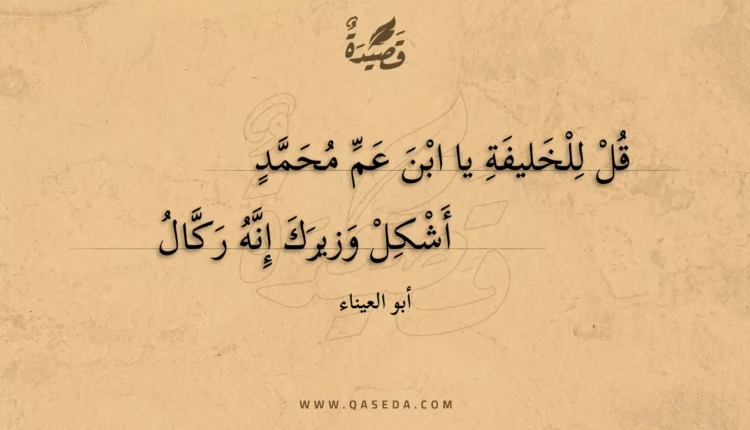 قَصِيْدَةٌ
قُلْ لِلْخَليفَةِ يا ابْنَ عَمِّ مُحَمَّدٍ
أَشْكِلْ وَزيرَكَ إِنَّهُ رَكَّالُ
أبو العيناء
WWW.QASEDA.COM